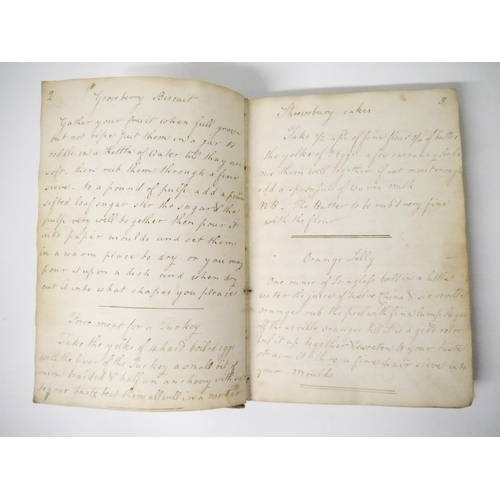 2
Gooseberry Biscuit
Gather your fruit when full grown
but not ripe put them in a jar to
coddle in a Kettle of Water till they are
soft, then rub them through a fine
sieve - to a pound of pulp add a pound
sifted loaf sugar stir the sugar &
pulp very well together then pour it
into paper moulds and set them
in a warm place to dry, or you may
pour it upon a dish and when dry
cut it into what shapes you please
Force meat for a Turkey
Take the yolks of 4 hard boiled eggs
with the liver of the Turkey a small bit of
& half an anchovy with
to your taste beat them all well in a mortar
3
Shrewsbury cakes
Take of fine flour of butter
the yolks of eggs a few
mix them well together if not moist enough
add a spoonfull of warm milk
NB. The Butter to be rub'd very fine
with the flour
Orange Jelly
One ounce of Isinglass boil'd in a little
water the juice of twelve China & six seville
oranges rub the peel with fine lump sugar
off the seville oranges till it is a good color
boil it up together sweeten to your taste
strain it thro a fine hair sieve into
your moulds